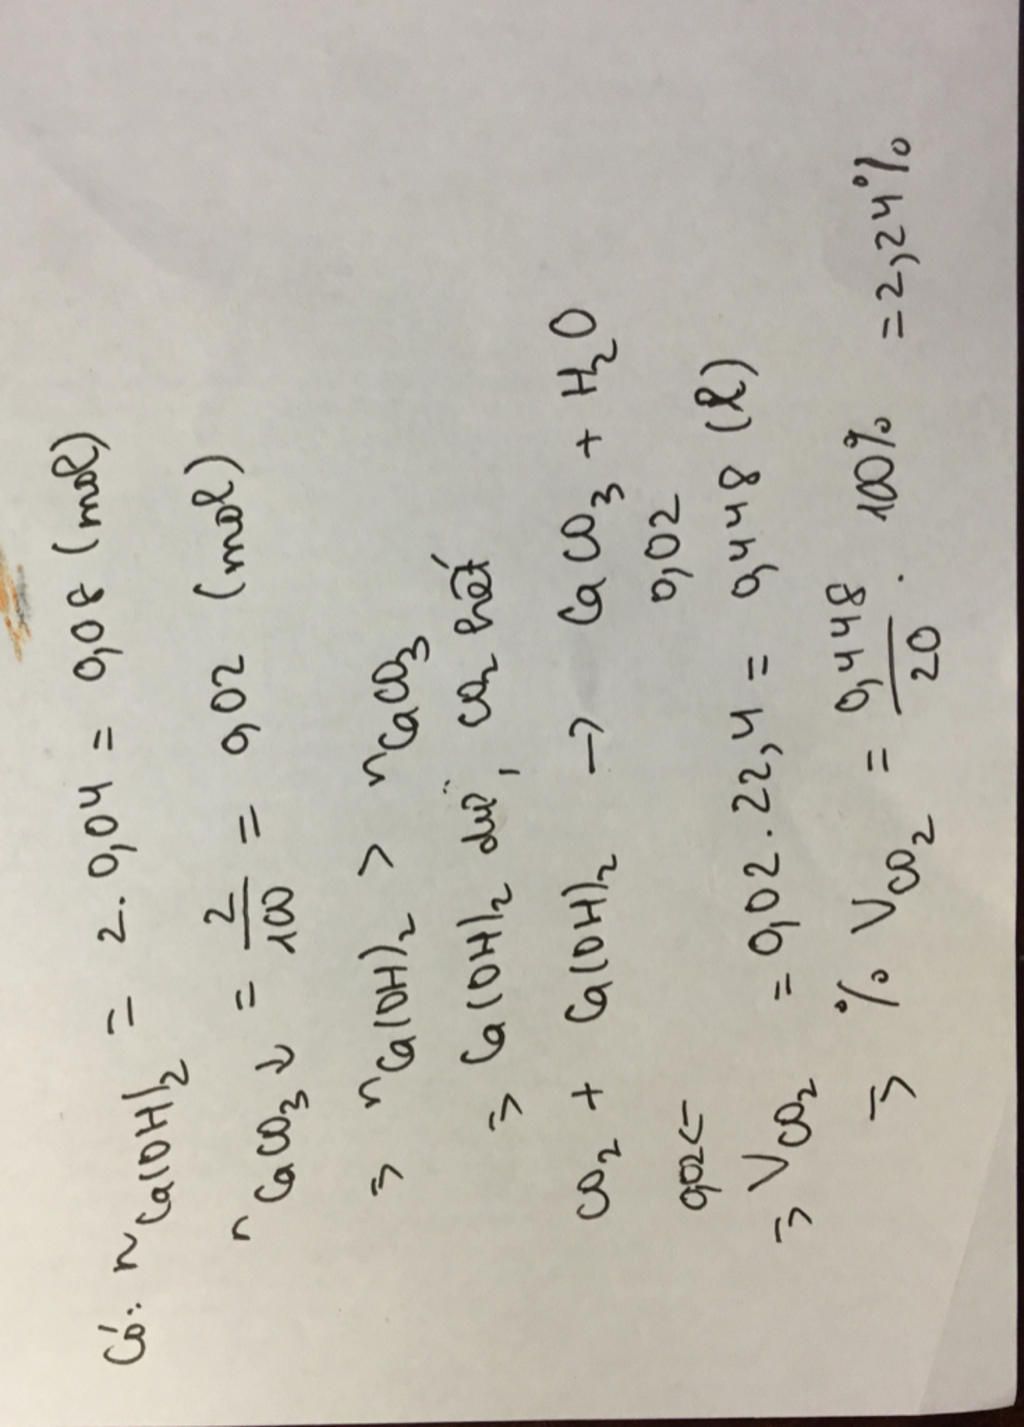 Có: n Ca(OH)2 = 2. 0,04 = 0,08 (mol)
n CaCO3↓ = 2/100 = 0,02 (mol)
⇒ n Ca(OH)2 > n CaCO3
⇒ Ca(OH)2 dư, CO2 hết
CO2 + Ca(OH)2 → CaCO3 + H2O
0,02 ← 0,02
⇒ V CO2 = 0,02 . 22,4 = 0,448 (l)
⇒ % V CO2 = 0,448/20 . 100% = 2,24%